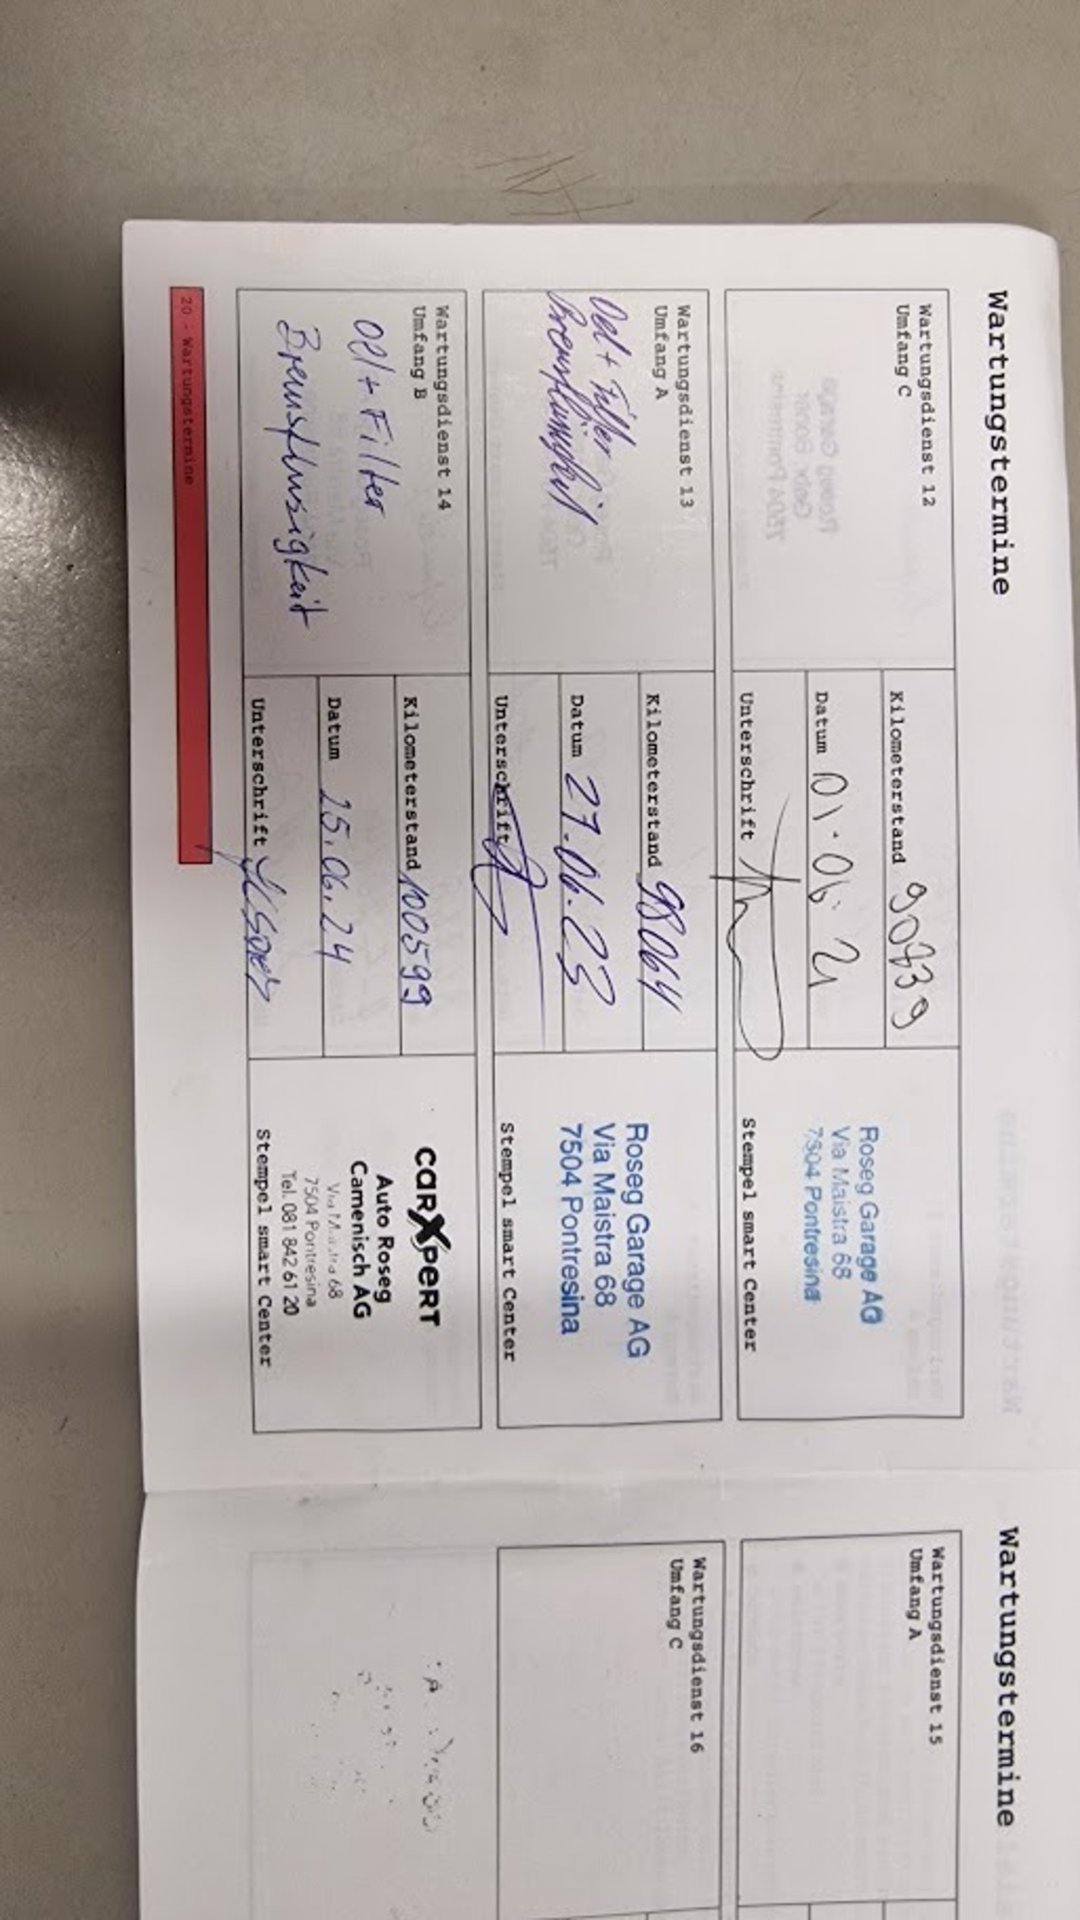 Wartungstermine
Wartungsdienst 12
Umfang C
Kilometerstand 90739
Datum 01.06.21
Unterschrift
Roseg Garage AG
Via Maistra 68
7504 Pontresina
Stempel smart Center
Wartungsdienst 13
Umfang A
Oel + Filter
Bremsflüssigkeit
Kilometerstand 98064
Datum 27.06.23
Unterschrift
Roseg Garage AG
Via Maistra 68
7504 Pontresina
Stempel smart Center
Wartungsdienst 14
Umfang B
Oel + Filter
Bremsflüssigkeit
Kilometerstand 100599
Datum 25.06.24
Unterschrift
carXpert
Auto Roseg
Camenisch AG
Via Maistra 68
7504 Pontresina
Tel. 081 842 61 20
Stempel smart Center
20 - Wartungstermine
Wartungstermine
Wartungsdienst 15
Umfang A
Wartungsdienst 16
Umfang C